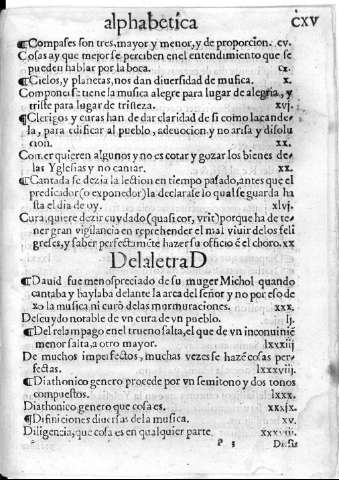 alphabetica cxv
¶Compases son tres, mayor y menor, y de proporcion. cv.
Cosas ay que mejor se perciben en el entendimiento que se
pueden hablar por la boca. cx.
¶Cielos, y planetas, nos dan diuersidad de musica. x.
Componese tiene la musica alegre para lugar de alegria, y
triste para lugar de tristeza. xvj.
¶Clerigos y curas han de dar claridad de si como la cande-
la, para edificar al pueblo, a deuocion y no a risa y disolu
cion. xx.
Comer quieren algunos y no escotar y gozar los bienes de
las Yglesias y no cantar. xx.
¶Cantada se dezia la lection en tiempo pasado, antes que el
predicador (o exponedor) la declarase lo qual se guarda ha
sta el dia de oy. xlvj.
Cura, quiere dezir cuydado (quasi cor, vrit) porque ha de te-
ner gran vigilancia en reprehender el mal viuir de los feli
greses, y saber perfectamēte hazer su officio ē el choro. xx
De la letra D.
¶Dauid fue menospreciado de su muger Michol quando
cantaba y baylaba delante la arca del señor y no por eso de
xo la musica ni curó de las murmuraciones. xxx.
Descuydo notable de vn cura de vn pueblo. lj.
¶Del relampago en el trueno salta, el que de vn inconuiniē
menor salta, a otro mayor. lxxxiij
De muchos imperfectos, muchas vezes se hazē cosas per-
fectas. lxxxviij.
¶Diathonico genero procede por vn semitono y dos tonos
compuestos. lxxx.
Diathonico genero que cosa es. xxxjx.
¶Difiniciones diuersas de la musica. xv.
Diligencia, que cosa es en qualquier parte.
P 3 Diesis